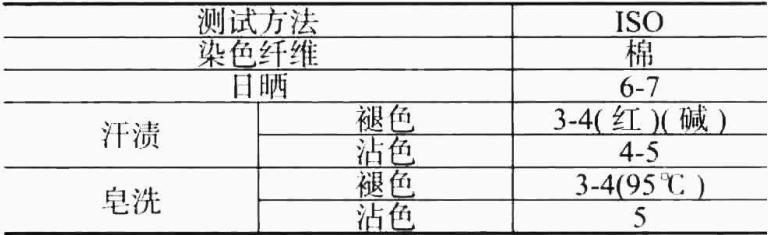 测试方法 ISO
染色纤维 棉
日晒 6-7
汗渍 褪色 3-4(红)(碱)
沾色 4-5
皂洗 褪色 3-4(95℃)
沾色 5